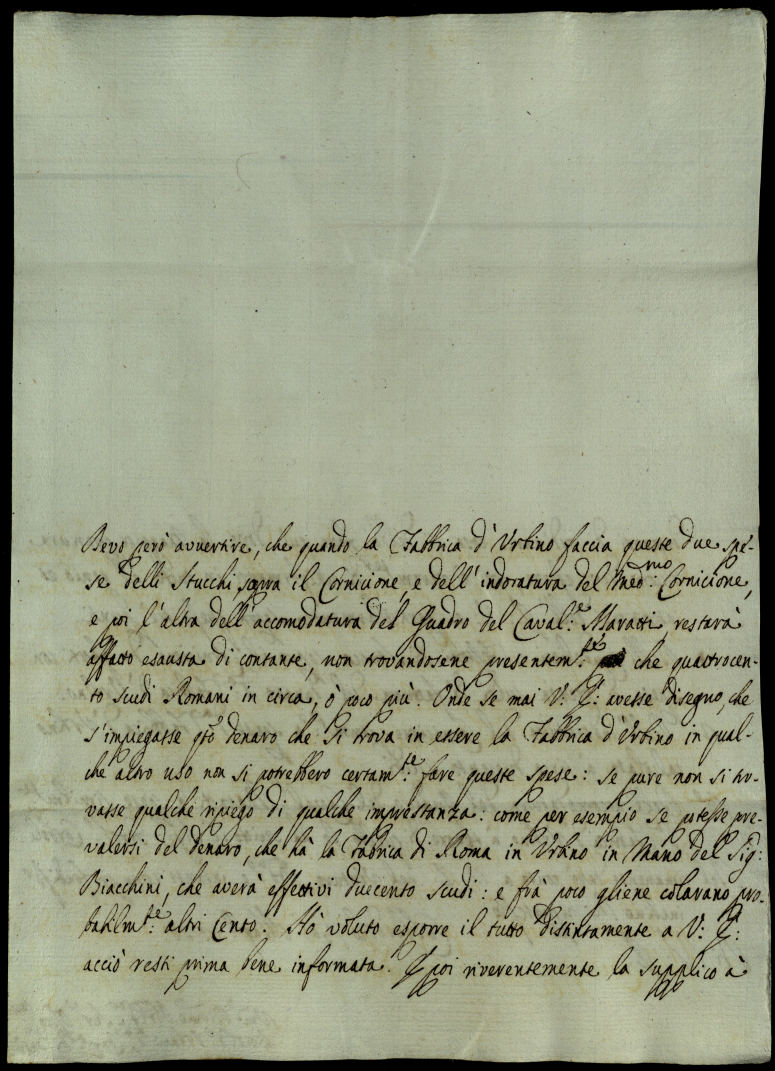 Devo però avvertire, che quando la Fabbrica d'Urbino faccia queste due spe-
se delli Stucchi sopra il Cornicione, e dell'indoratura del med:mo Cornicione,
e poi l'altra dell'accomodatura del Quadro del Caval:e Maratti, restarà
affatto esausta di contante, non trovandosene presentem:te che quattrocen-
to scudi Romani in circa, ò poco più. Onde se mai V: E: avesse disegno, che
s'impiegasse qto denaro che si trova in essere la Fabbrica d'Urbino in qual-
che altro uso non si potrebbero certam:te fare queste spese: se pure non si tro-
vasse qualche ripiego di qualche imprestanza: come per esempio se potesse pre-
valersi del denaro, che hà la Fabrica di Roma in Urbino in mano del Sig:
Biacchini, che averà effettivi duecento scudi: e frà poco gliene colarano pro-
babilm:te altri Cento. Hò voluto esporre il tutto distintamente a V: E:
acciò resti prima bene informata. E poi riverentemente la supplico à